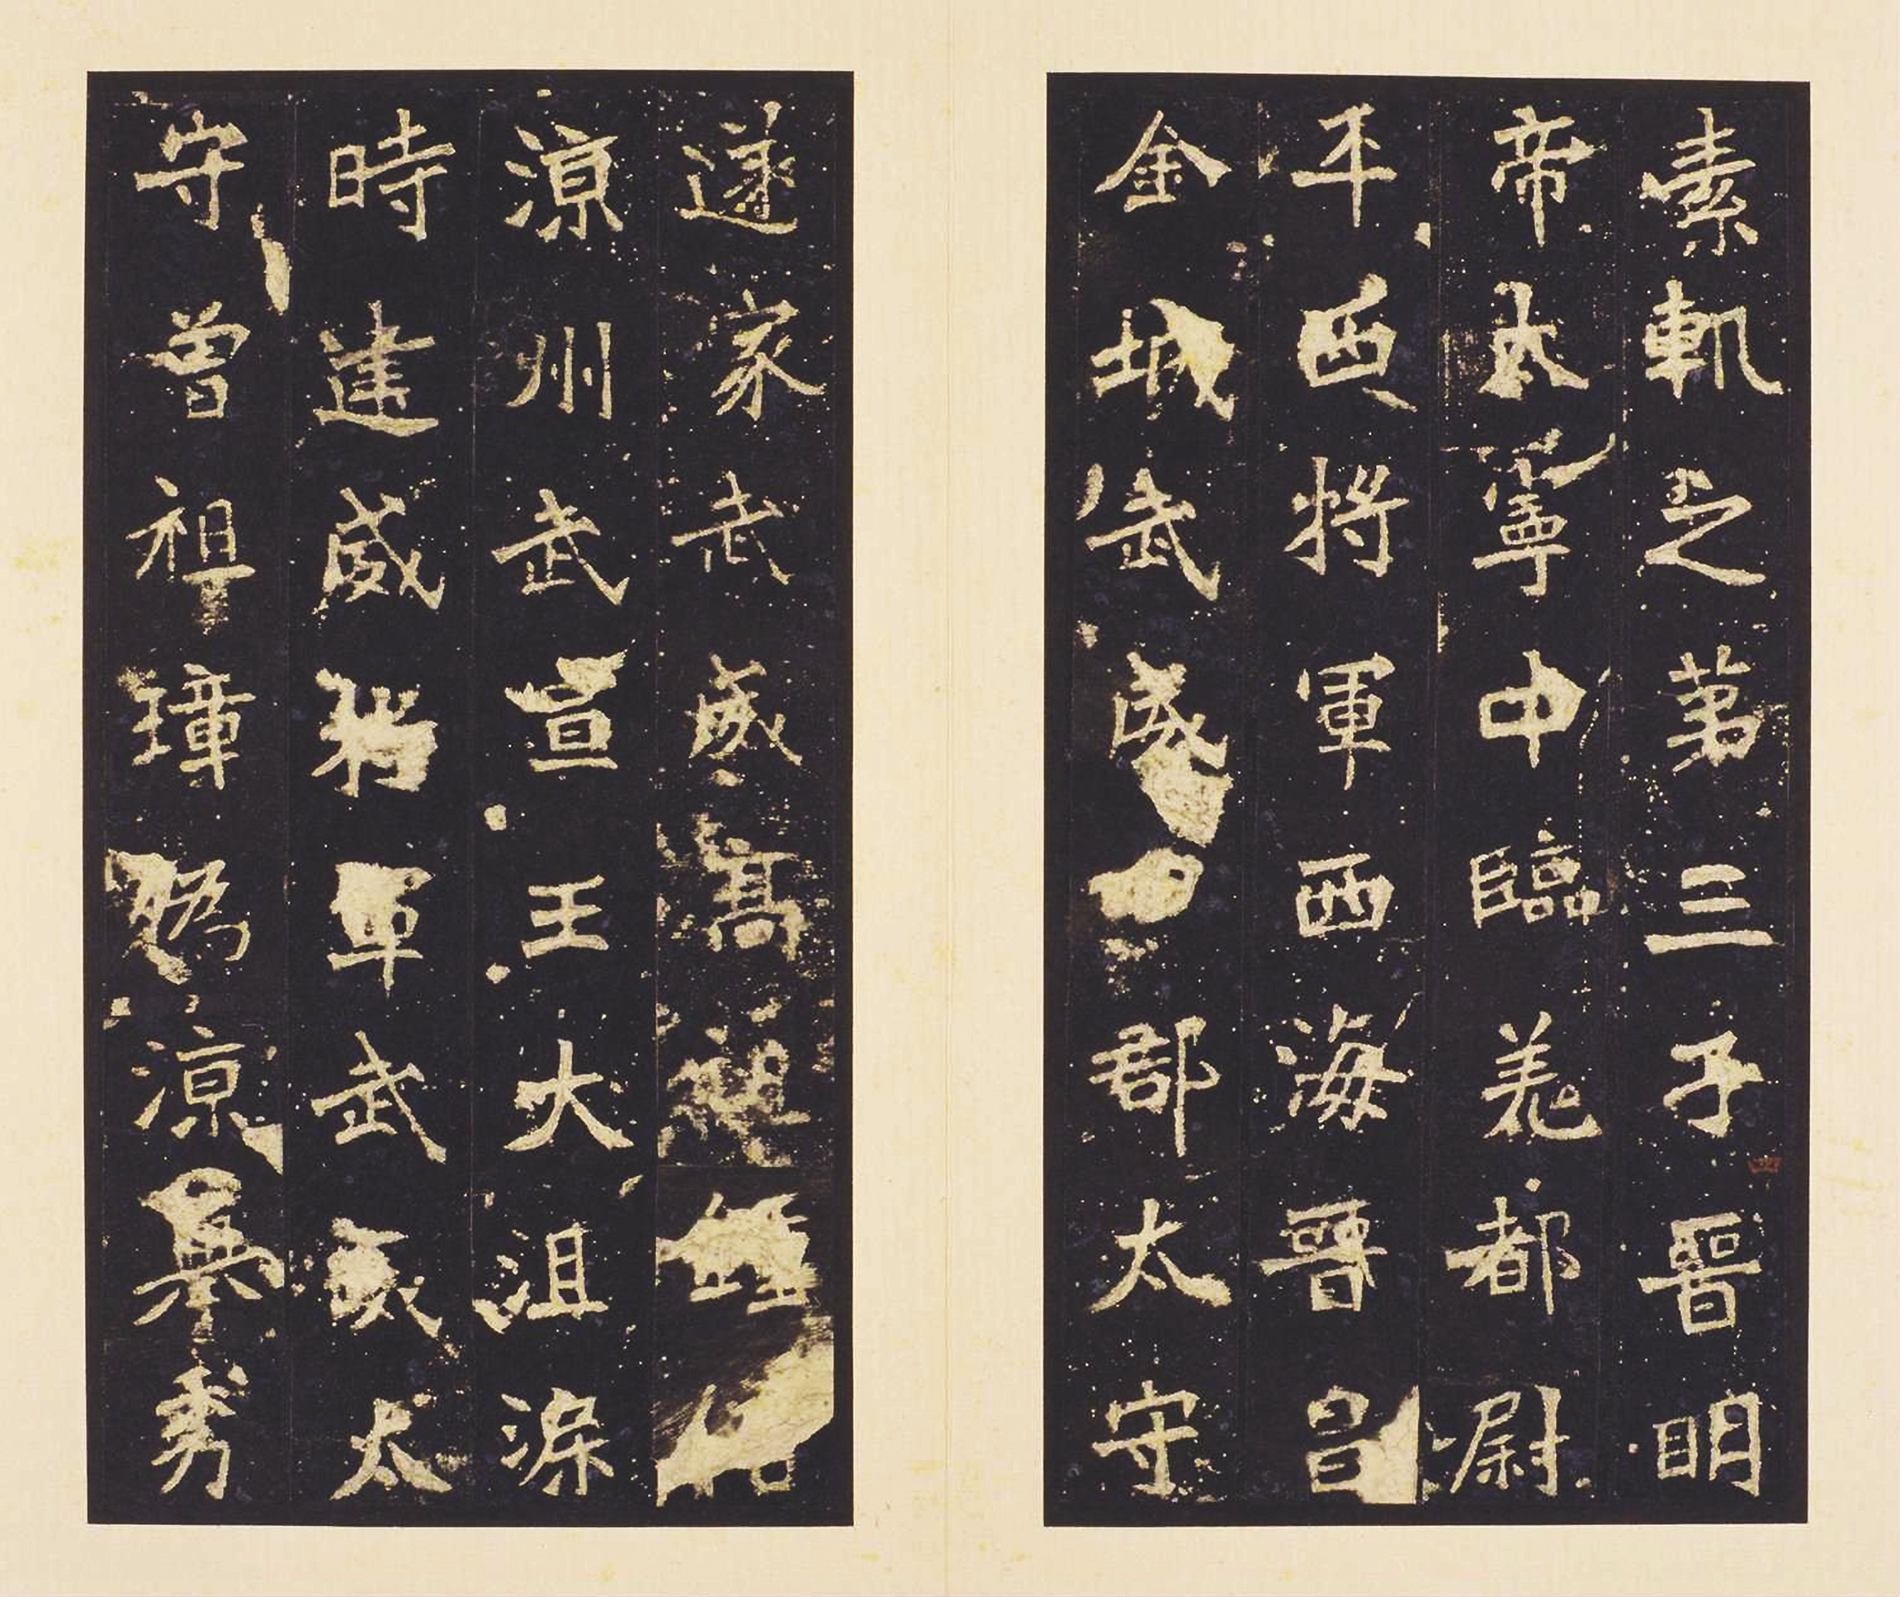 素軌之苐三子晉明
帝太寧中臨羌都尉
平西將軍西海晉昌
金城武威四郡太守
遂家武威高祖鍾信
涼州武宣王大沮渠
時建威將軍武威太
守曾祖璋偽涼舉秀